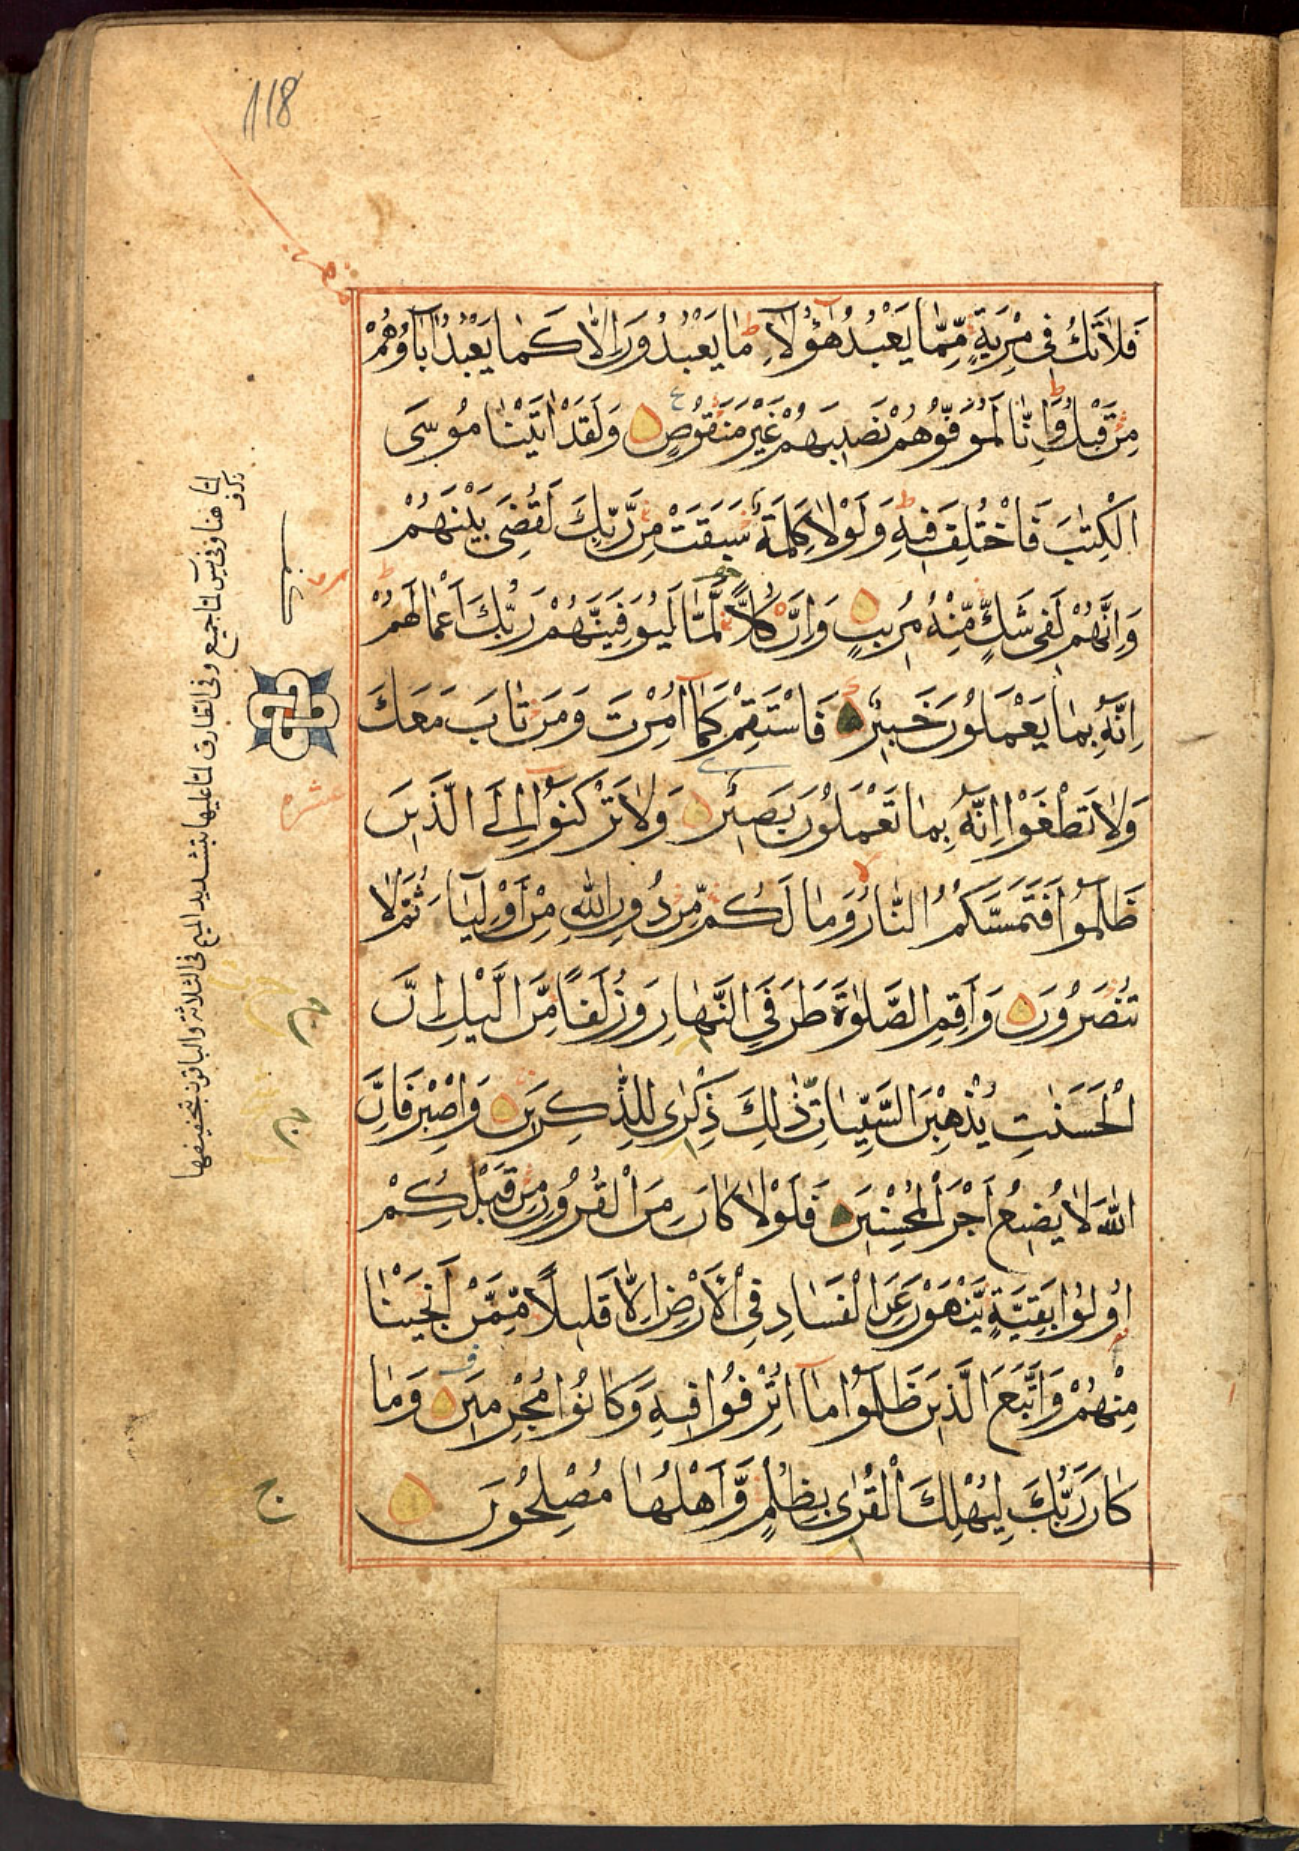 118
فَلَا تَكُ فِي مِرْيَةٍ مِّمَّا يَعْبُدُ هٰٓؤُلَآءِ مَا يَعْبُدُونَ اِلَّا كَمَا يَعْبُدُ اٰبَآؤُهُمْ
مِنْ قَبْلُ وَاِنَّا لَمُوَفُّوهُمْ نَصِيبَهُمْ غَيْرَ مَنْقُوصٍ وَلَقَدْ اٰتَيْنَا مُوسَى
الْكِتٰبَ فَاخْتُلِفَ فِيهِ وَلَوْلَا كَلِمَةٌ سَبَقَتْ مِنْ رَّبِّكَ لَقُضِيَ بَيْنَهُمْ
وَاِنَّهُمْ لَفِي شَكٍّ مِّنْهُ مُرِيبٍ وَاِنَّ كُلًّا لَّمَّا لَيُوَفِّيَنَّهُمْ رَبُّكَ اَعْمَالَهُمْ
اِنَّهُ بِمَا يَعْمَلُونَ خَبِيرٌ فَاسْتَقِمْ كَمَآ اُمِرْتَ وَمَنْ تَابَ مَعَكَ
وَلَا تَطْغَوْا اِنَّهُ بِمَا تَعْمَلُونَ بَصِيرٌ وَلَا تَرْكَنُوٓا اِلَى الَّذِينَ
ظَلَمُوا فَتَمَسَّكُمُ النَّارُ وَمَا لَكُمْ مِّنْ دُونِ اللّٰهِ مِنْ اَوْلِيَآءَ ثُمَّ لَا
تُنْصَرُونَ وَاَقِمِ الصَّلٰوةَ طَرَفَيِ النَّهَارِ وَزُلَفًا مِّنَ الَّيْلِ اِنَّ
الْحَسَنٰتِ يُذْهِبْنَ السَّيِّاٰتِ ذٰلِكَ ذِكْرٰى لِلذّٰكِرِينَ وَاصْبِرْ فَاِنَّ
اللّٰهَ لَا يُضِيعُ اَجْرَ الْمُحْسِنِينَ فَلَوْلَا كَانَ مِنَ الْقُرُونِ مِنْ قَبْلِكُمْ
اُولُوا بَقِيَّةٍ يَّنْهَوْنَ عَنِ الْفَسَادِ فِي الْاَرْضِ اِلَّا قَلِيلًا مِّمَّنْ اَنْجَيْنَا
مِنْهُمْ وَاتَّبَعَ الَّذِينَ ظَلَمُوا مَآ اُتْرِفُوا فِيهِ وَكَانُوا مُجْرِمِينَ وَمَا
كَانَ رَبُّكَ لِيُهْلِكَ الْقُرٰى بِظُلْمٍ وَّاَهْلُهَا مُصْلِحُونَ
لما هنا وفي يس لما جميع وفي الطارق لما عليها بتشديد الميم في الثلاثة والباقون بتخفيفها
عشره